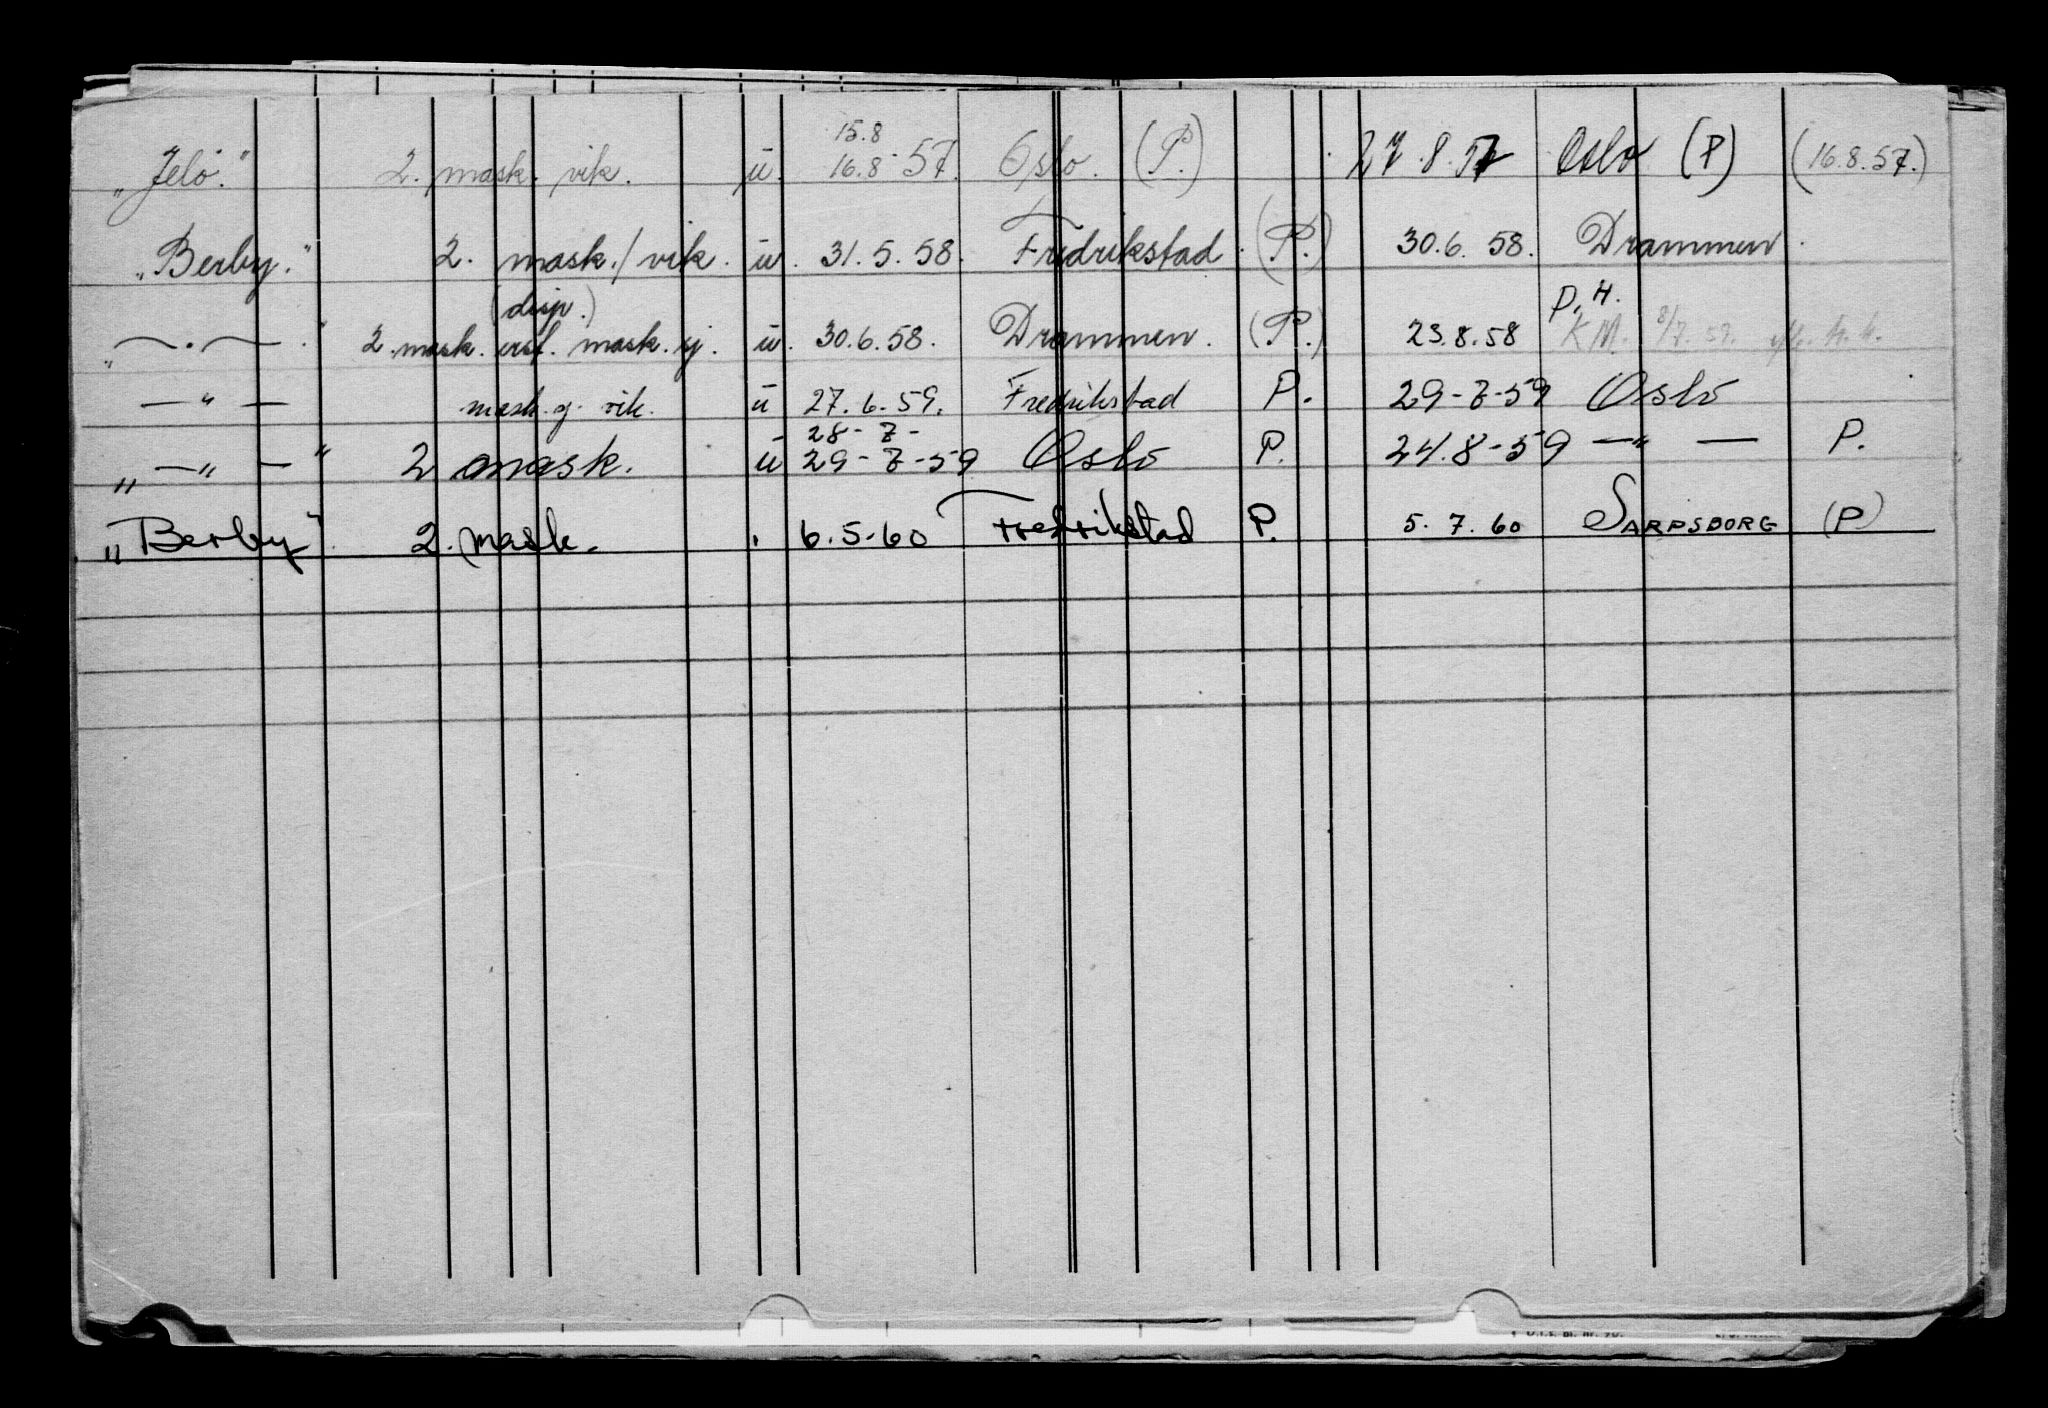 15.8
„Jelö." 2. mask. vik. ū. 16.8-57. Oslo. (P.) 27.8.57 Oslo (P) (16.8.57.)
„Berby." 2. mask./vik. ū. 31.5.58. Fredrikstad. (P.) 30.6.58. Drammen.
(disp.) P.H.
„—.—." 2. mask. erst. mask. sj. ū. 30.6.58. Drammen. (P.) 23.8.58 KM.
—"— mask. g. vik. ū 27.6.59. Fredrikstad P. 29-7-59 Oslo
28-7-
„—"—" 2 mask. ū 29-7-59 Oslo P. 24.8-59 —"— P.
„Berby". 2. mask. " 6.5-60 Fredrikstad P. 5.7.60 SARPSBORG (P)